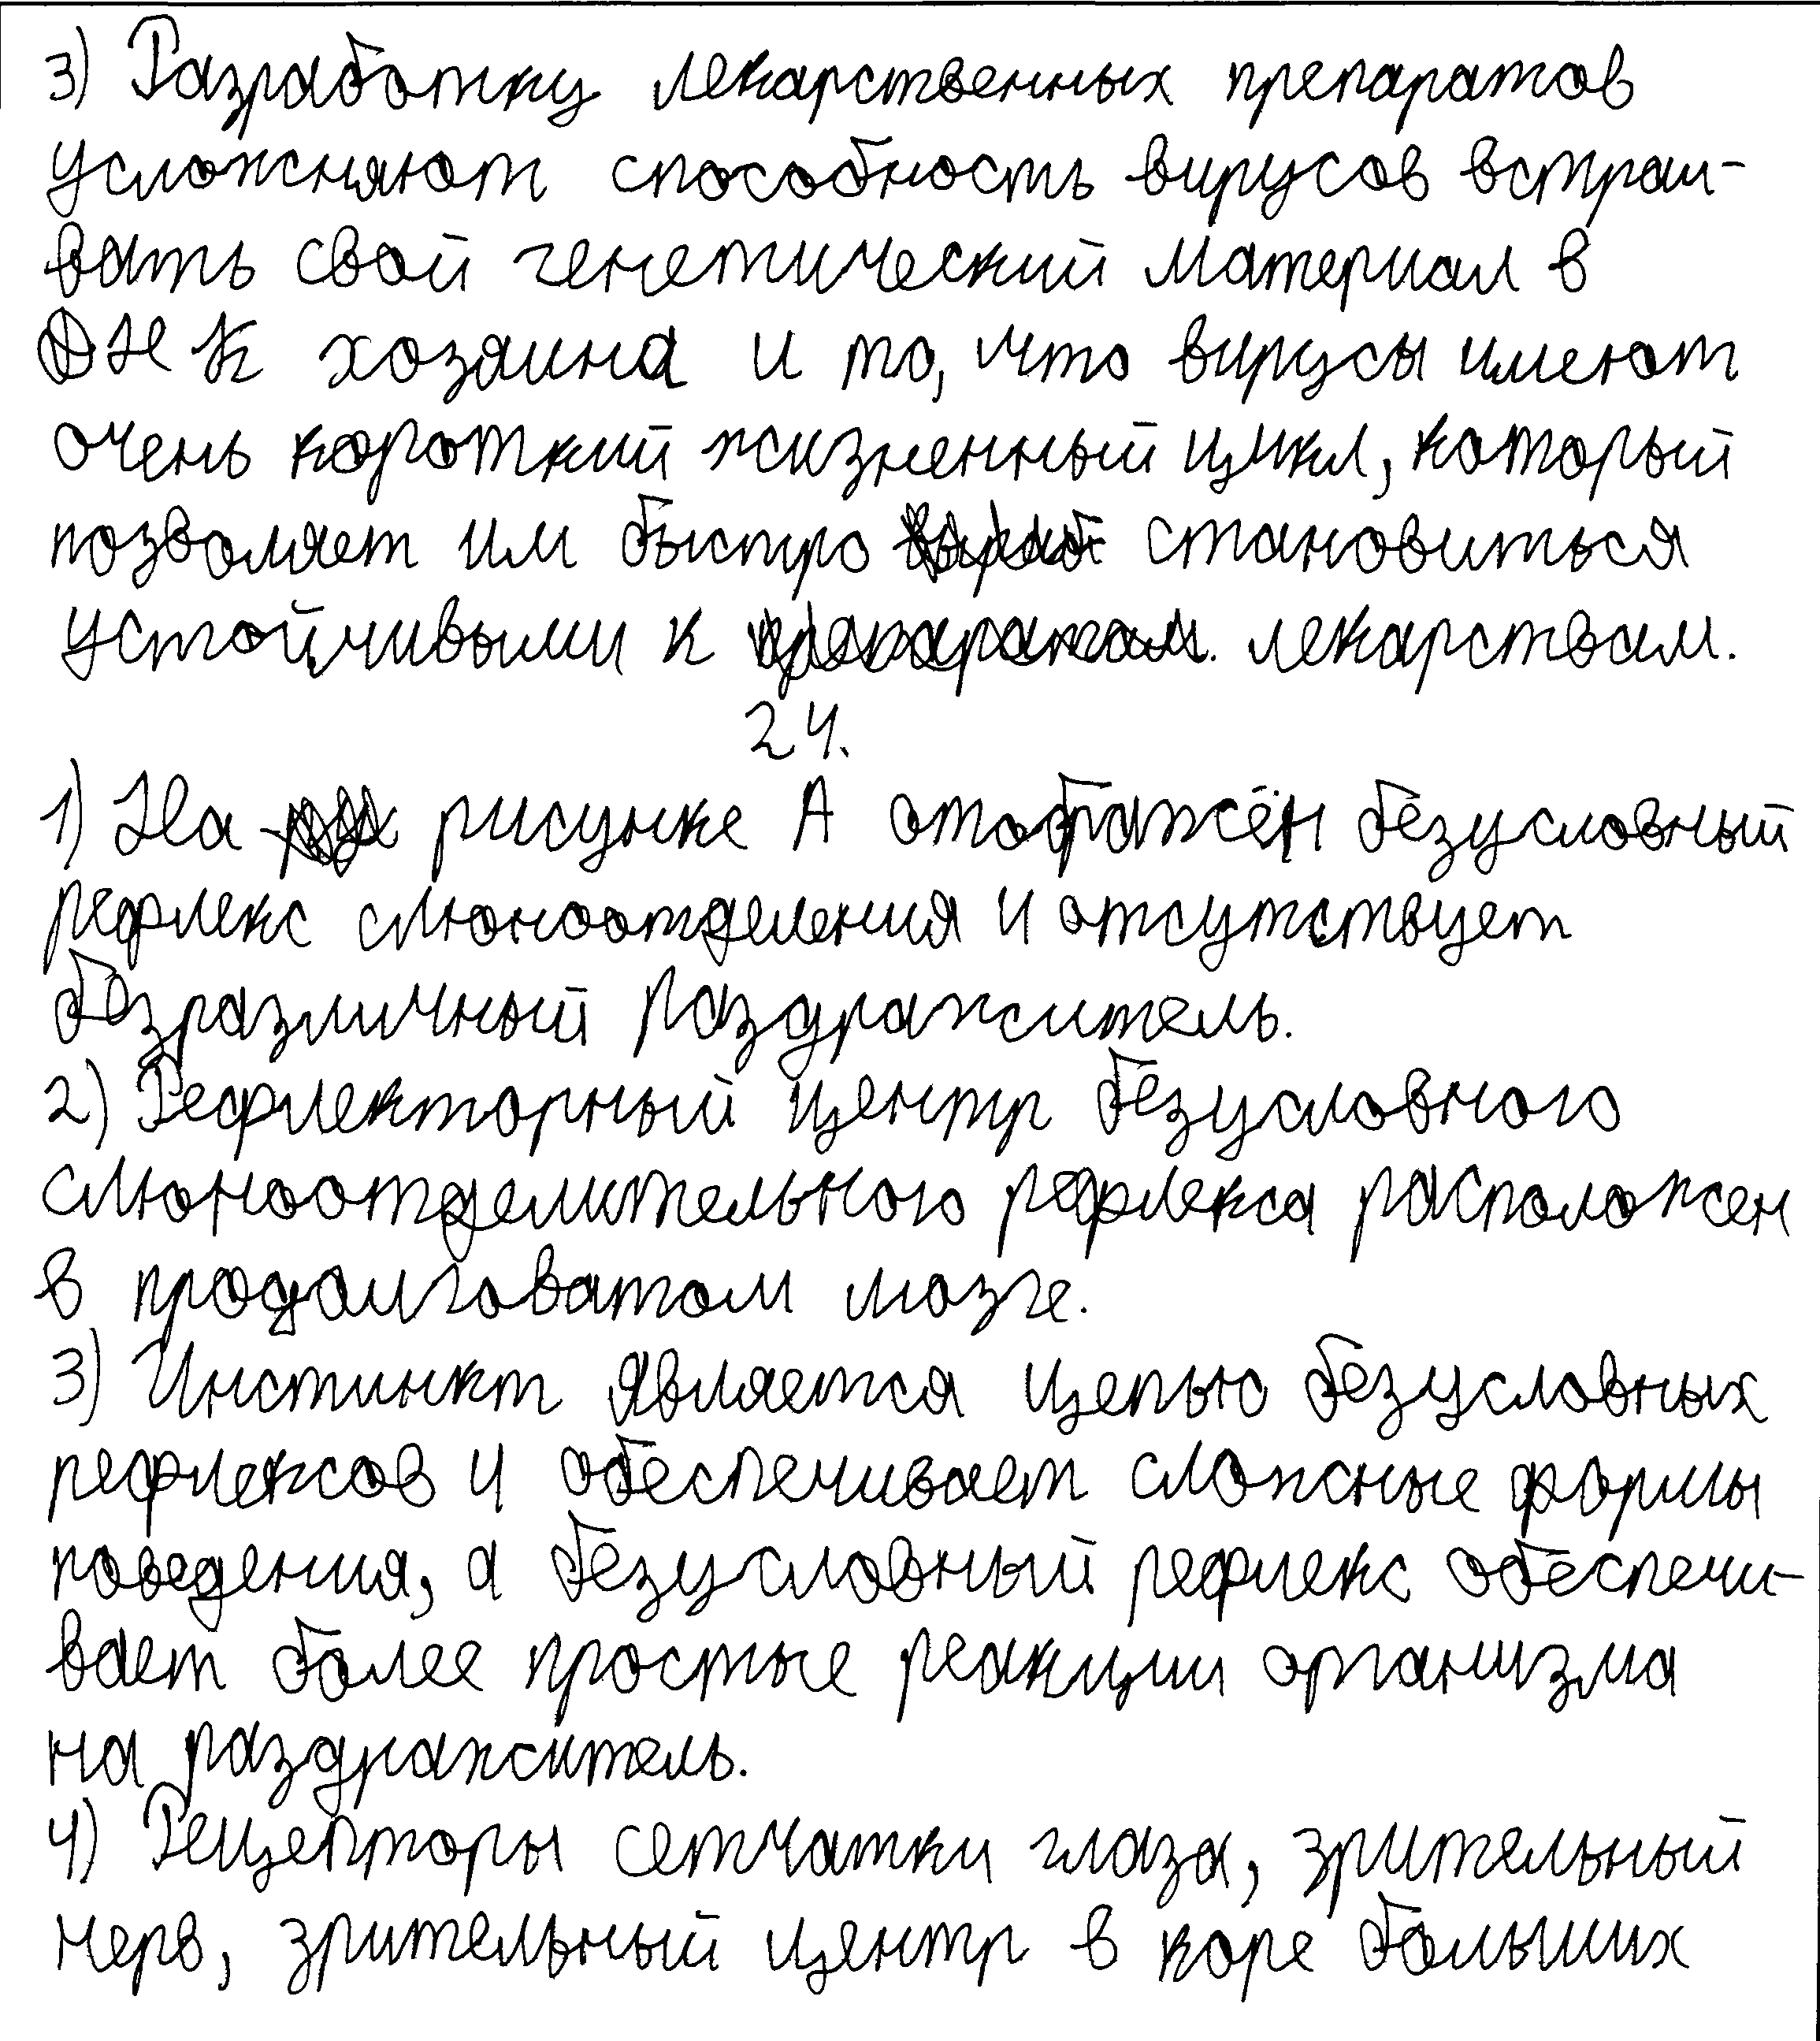 3) Разработку лекарственных препаратов
усложняют способность вирусов встраи-
вать свой генетический материал в
ДНК хозяина и то, что вирусы имеют
очень короткий жизненный цикл, который
позволяет им быстро становиться
устойчивыми к препаратам. лекарствам.
24.
1) На рисунке А отображён безусловный
рефлекс слюноотделения и отсутствует
безразличный раздражитель.
2) Рефлекторный центр безусловного
слюноотделительного рефлекса расположен
в продолговатом мозге.
3) Инстинкт является цепью безусловных
рефлексов и обеспечивает сложные формы
поведения, а безусловный рефлекс обеспечи-
вает более простые реакции организма
на раздражитель.
4) Рецепторы сетчатки глаза, зрительный
нерв, зрительный центр в коре больших